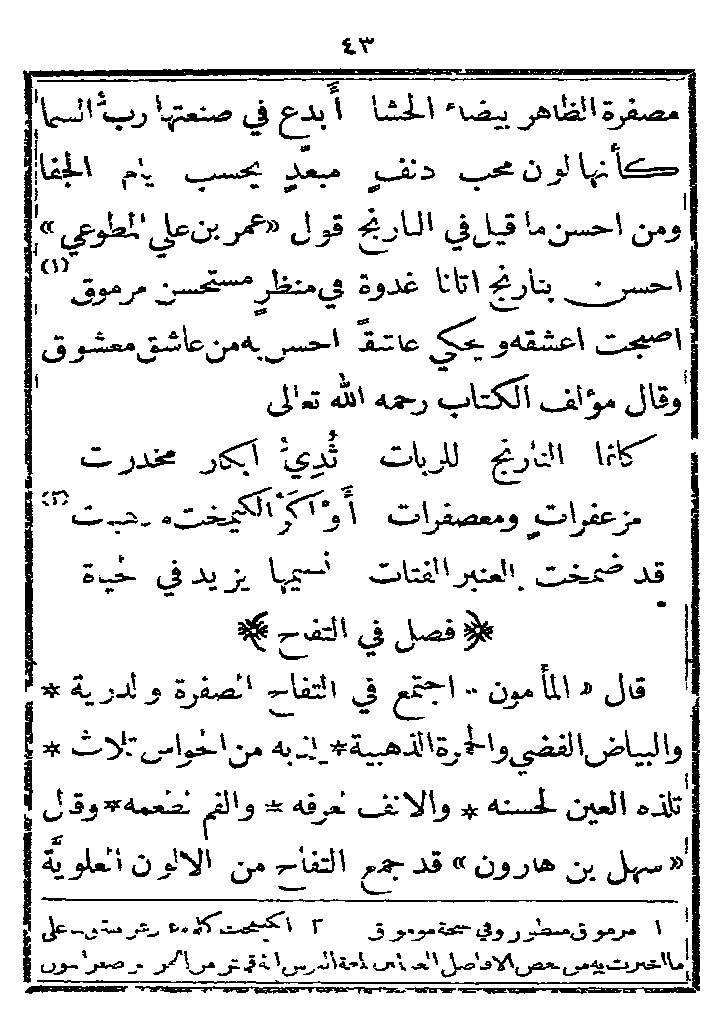 ٤٣
مصفرة الظاهر بيضاء الحشا أبدع في صنعتها رب السما
كأنها لون محب دنف مبعد يحسب يام الجفا
ومن احسن ما قيل في النارنج قول «عمر بن علي المطوعي»
احسن بنارنج اتانا غدوة في منظر مستحسن مرموق (١)
اصبحت اعشقه ويحكي عاشقاً احسن به من عاشق معشوق
وقال مؤلف الكتاب رحمه الله تعالى
كانما النارنج للربات ثدي ابكار مخدرت
مزعفرات ومعصفرات أو اكر الكيمخت (٢)
قد ضمخت بالعنبر الفتات نسيمها يزيد في
﴿ فصل في التفاح ﴾
قال « المأمون » اجتمع في التفاح الصفرة والدرية *
والبياض الفضي والحمرة الذهبية * يلذ به من الحواس ثلاث *
تلذه العين لحسنه * والانف لعرفه * والفم لطعمه * وقال
«سهل بن هارون» قد جمع التفاح من الالون العلوية
١ مرموق منظور وفي نسخة موموق ٢ الكيمخت على
ما اخبرت به من بعض الافاضل